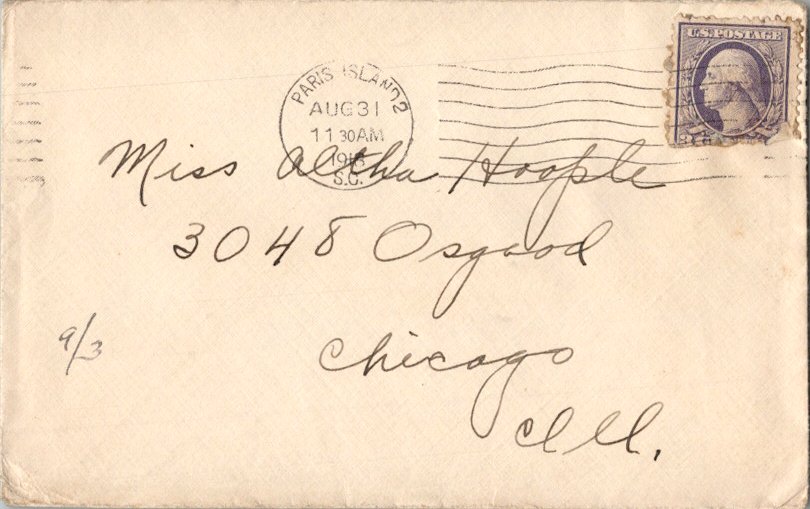 U.S. POSTAGE
PARIS ISLAND
AUG 31
11 30 AM
1918
S.C.
Miss Altha Hoople
3048 Osgood
Chicago
Ill.
9/3